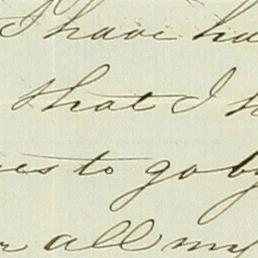 I have ha
that I h
es to go by
r all my